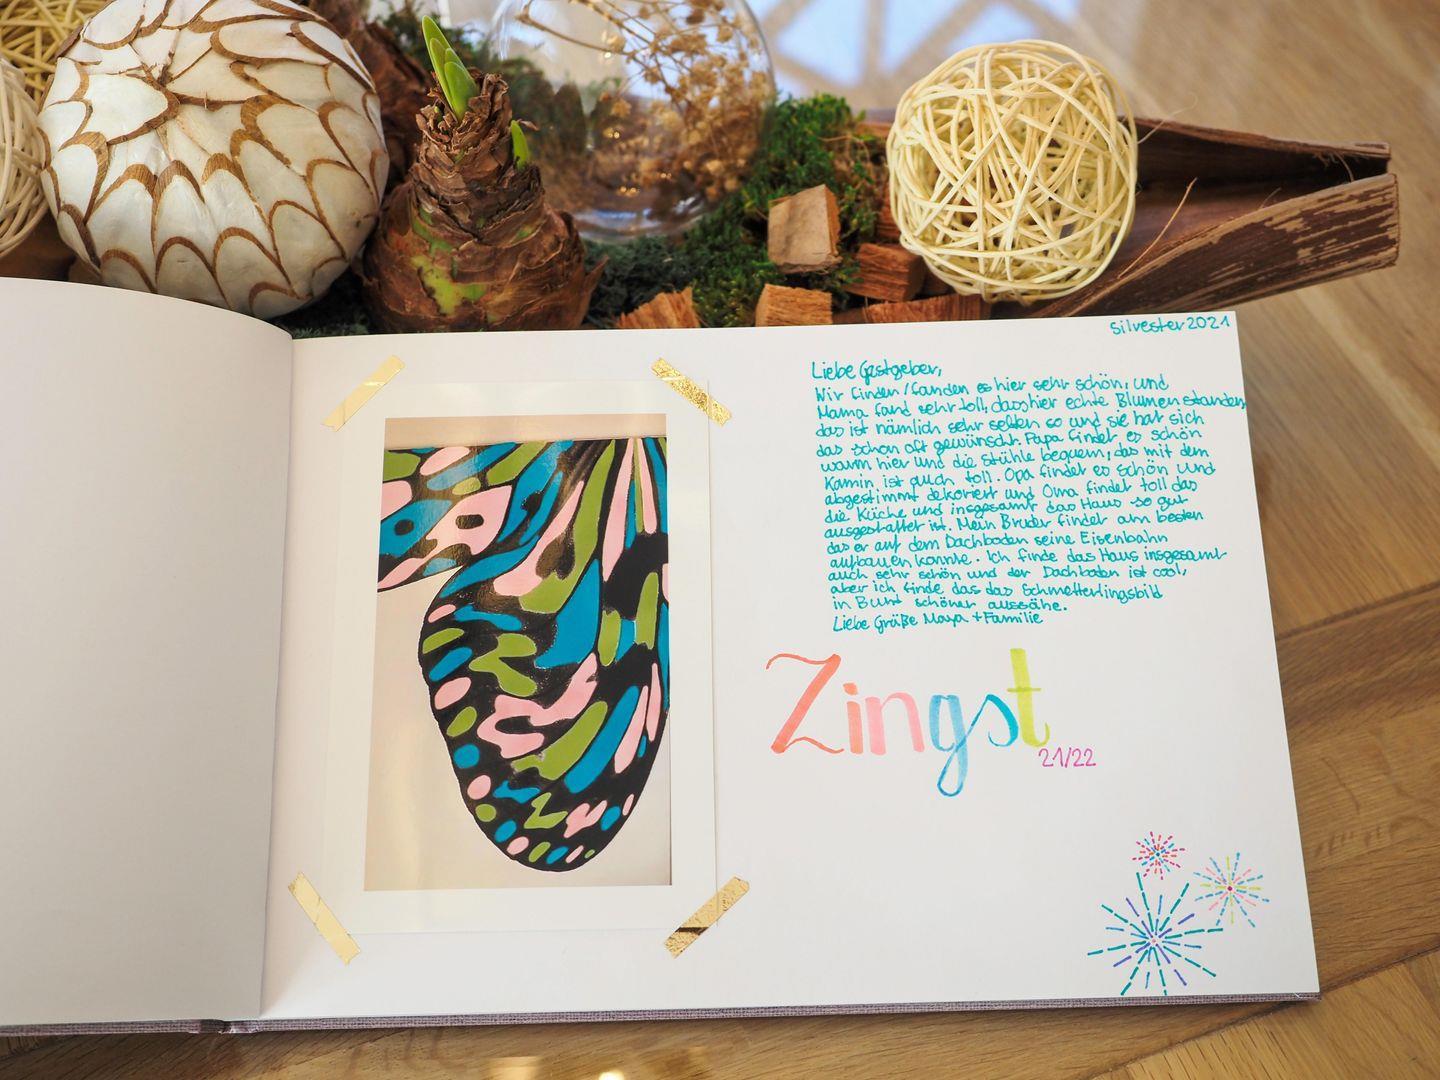 Silvester 2021
Liebe Gastgeber,
Wir finden/fanden es hier sehr schön, und
Mama fand sehr toll, dass hier echte Blumen standen,
das ist nämlich sehr selten so und sie hat sich
das schon oft gewünscht. Papa findet, es schön
warm hier und die Stühle bequem, das mit dem
Kamin ist auch toll. Opa findet es schön und
abgestimmt dekoriert und Oma findet toll das
die Küche und insgesamt das Haus so gut
ausgestattet ist. Mein Bruder findet am besten
das er auf dem Dachboden seine Eisenbahn
aufbauen konnte. Ich finde das Haus insgesamt
auch sehr schön und der Dachboden ist cool,
aber ich finde das das Schmetterlingsbild
in Bunt schöner aussähe.
Liebe Grüße Maya + Familie
Zingst
21/22